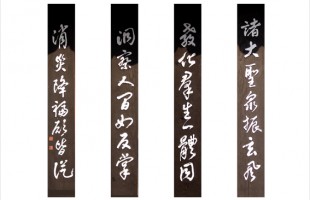 諸大聖衆振玄風
教化羣生一體同
洞察人間如反掌
消災降福願皆從